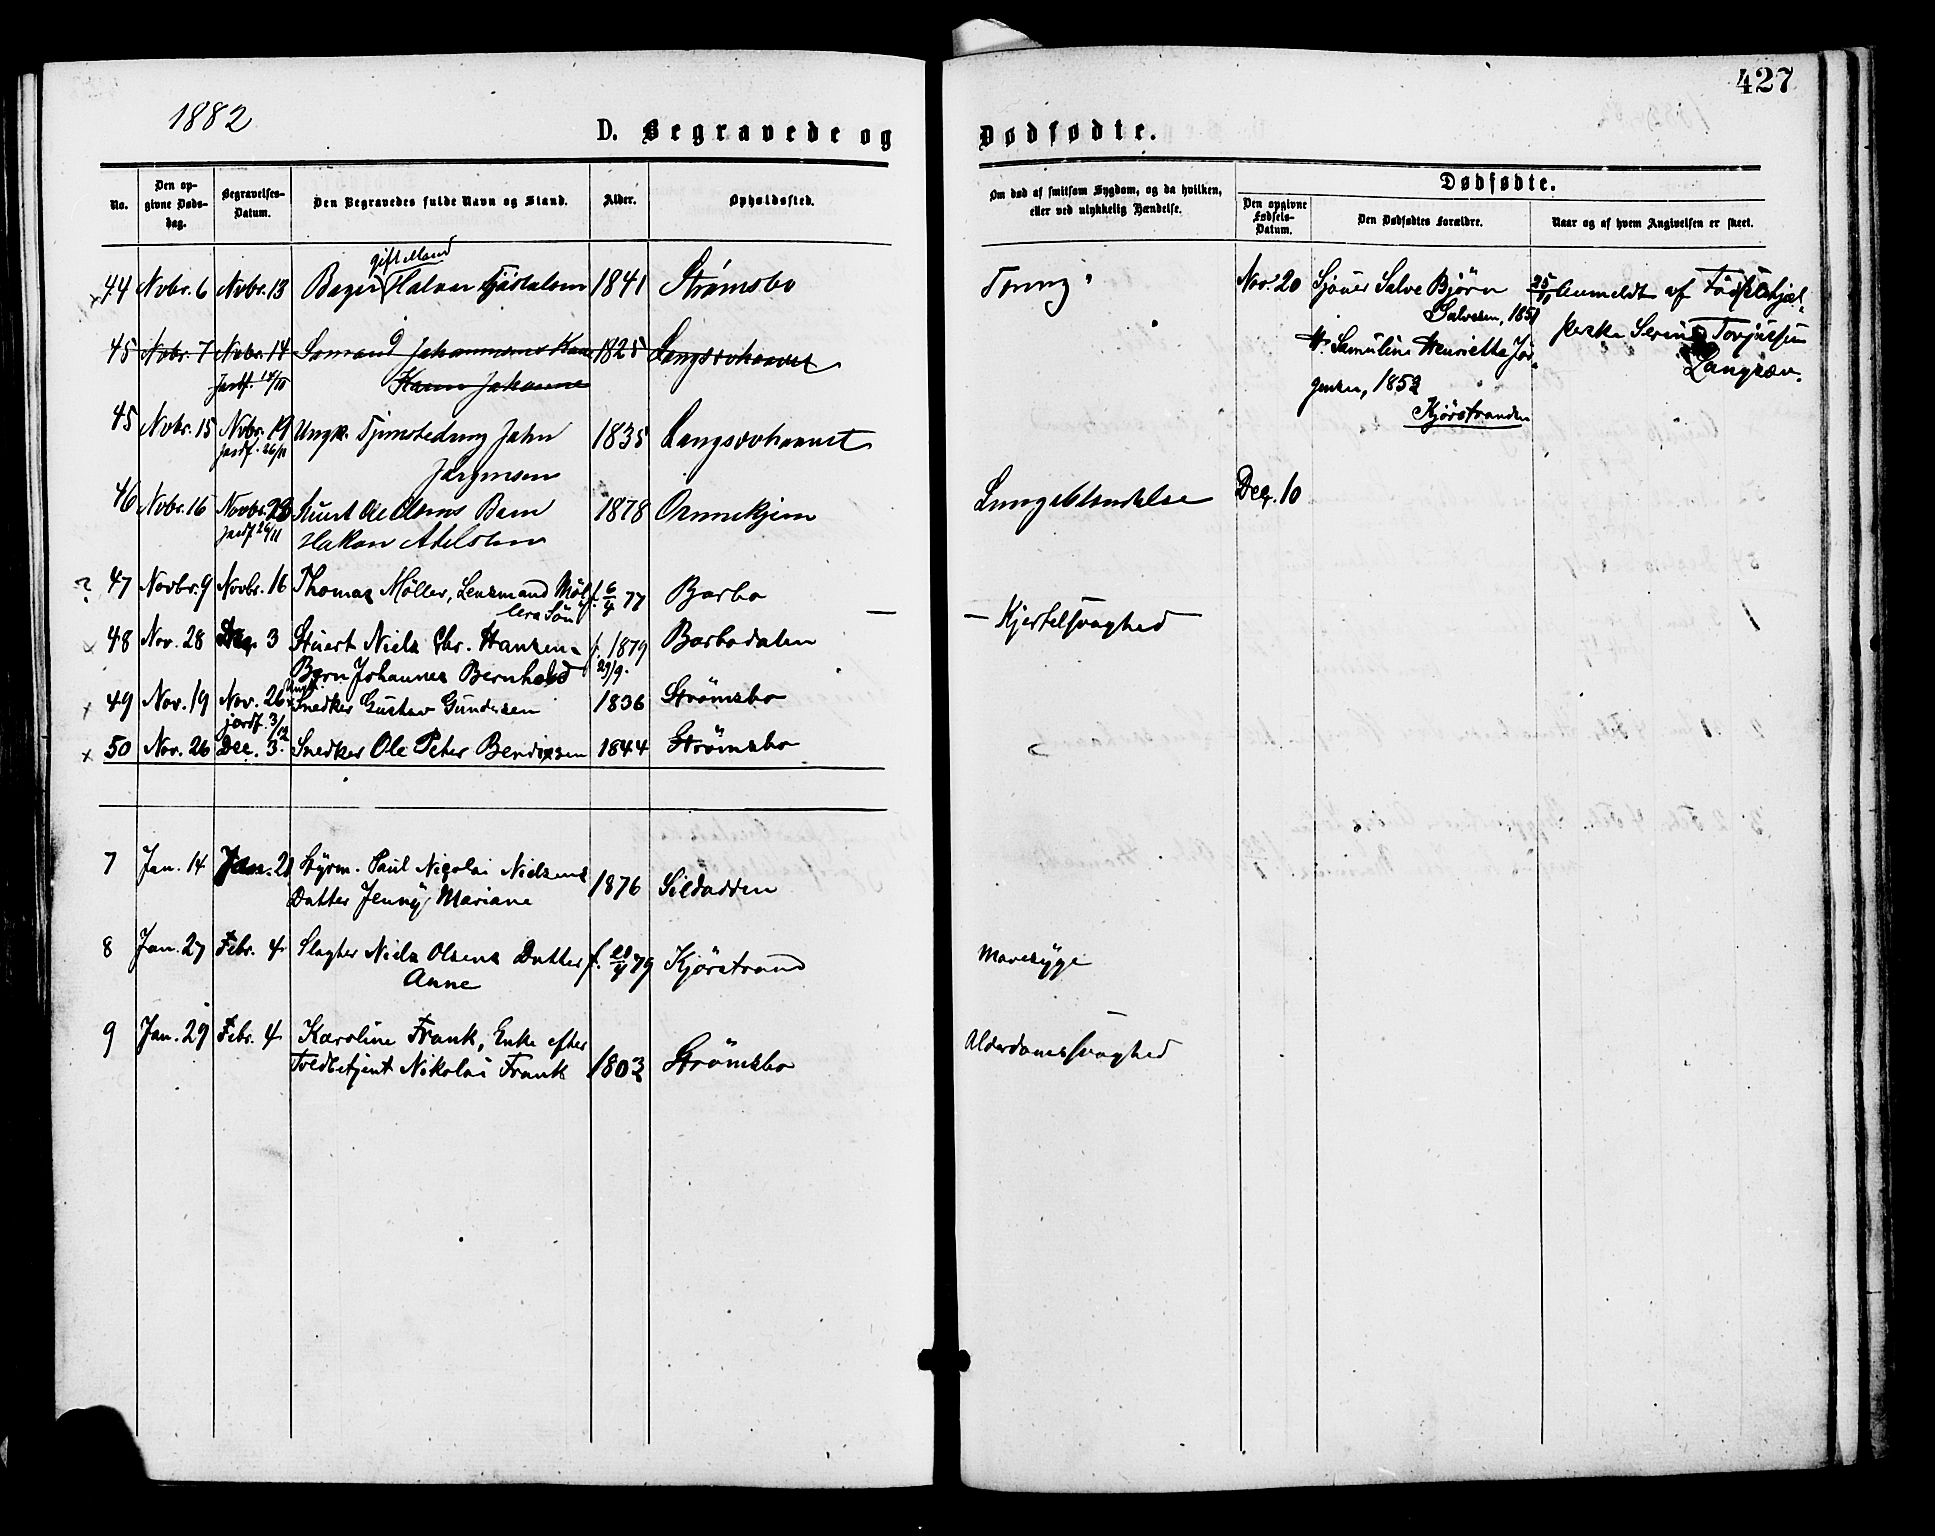 427
1882
D. Begravede og Dødfødte.
No.
Den opgivne Døds-dag.
Begravelses-Datum.
Den Begravedes fulde Navn og Stand.
Alder.
Opholdssted.
Om død af smitsom Sygdom, og da hvilken, eller ved ulykkelig Hændelse.
Dødfødte.
Den opgivne Fødsels-Datum.
Den Dødfødtes Forældre.
Naar og af hvem Angivelsen er skeet.
gift Mand
44 Novbr. 6 Novbr. 13 Bager Halvor 1841 Strømsbo
Nov. 20 Sjøner Salve Bjørn 25/11 Anmeldt af
Salvesen, 1851
45 Novbr. 7 Novbr. 14 Somand Johannesens Kone 1825
Jordf. 14/11 Karen Johanne
H. Samuline Henriette Jør-
gensen, 1852
Kjørstranden
perske Serine Torjusen
Langsæv.
45 Novbr. 15 Novbr. 19 Ungk. John 1835
Jordf. 26/11 Jørgensen
46 Novbr. 16 Novbr. 23 Stuert Ole Olsens Barn 1878
Jordf 26/11 Hakon Adelsten
Lungebetændelse Dec. 10
? 47 Novbr. 9 Novbr. 16 Thomas Möller, Lensmand Möl- f. 6/4 77 Barbo
lers Sön
— Kjertelsvaghed —
x 48 Nov. 28 Dec. 3 Stuert Niels Chr. Hansens f. 1879 Barbodalen
Barn Johannes Bernhard 29/9.
Ungk.
x 49 Nov. 19 Nov. 26 Snedker Gustav Gundersen 1836 Strømsbo
jordf. 3/12
x 50 Nov. 26 Dec. 3. Snedker Ole Peter Bendixsen 1844 Strømsbo
7 Jan. 14 Jan. 21 Styrm. Paul Nicolai Nielsens 1876 Sildodden
Datter Jenny Mariane
8 Jan. 27 Febr. 4 Slagter Niels Olsens Datter Kjørstrand
Anne
Mavesyge
9 Jan. 29 Febr. 4 Karoline Frank, Enke efter
Toldbetjent Nikolai Frank 1803 Strömsbo
Alderdomssvaghed